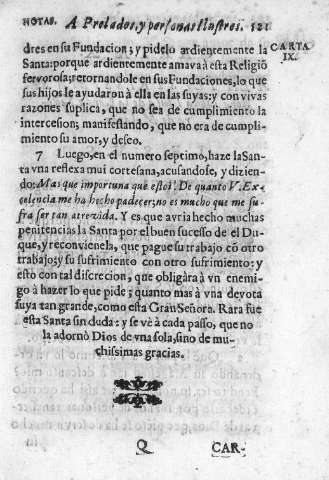 NOTAS. A Prelados, y personas Ilustres. 121
dres en su Fundacion; y pidelo ardientemente la
CARTA
IX.
Santa: porque ardientemente amava à esta Religiõ
fervorosa; retornandole en sus Fundaciones, lo que
sus hijos le ayudaron à ella en las suyas: y con vivas
razones suplica, que no sea de cumplimiento la
intercesion; manifestando, que no era de cumpli-
miento su amor, y deseo.
7 Luego, en el numero septimo, haze la San-
ta vna reflexa mui cortesana, acusandose, y dizien-
do: Mas que importuna què estoi! De quanto V. Ex-
celencia me ha hecho padecer; no es mucho que me su-
fra ser tan atrevida. Y es que avria hecho muchas
penitencias la Santa por el buen sucesso de el Du-
que, y reconvienela, que pague su trabajo cõ otro
trabajos; y su sufrimiento con otro sufrimiento: y
esto con tal discrecion, que obligàra à vn enemi-
go à hazer lo que pide; quanto mas à vna devota
suya tan grande, como esta Gran Señora. Rara fue
esta Santa sin duda: y se vè à cada passo, que no
la adornò Dios de vna sola, sino de mu-
chissimas gracias.
Q CAR-